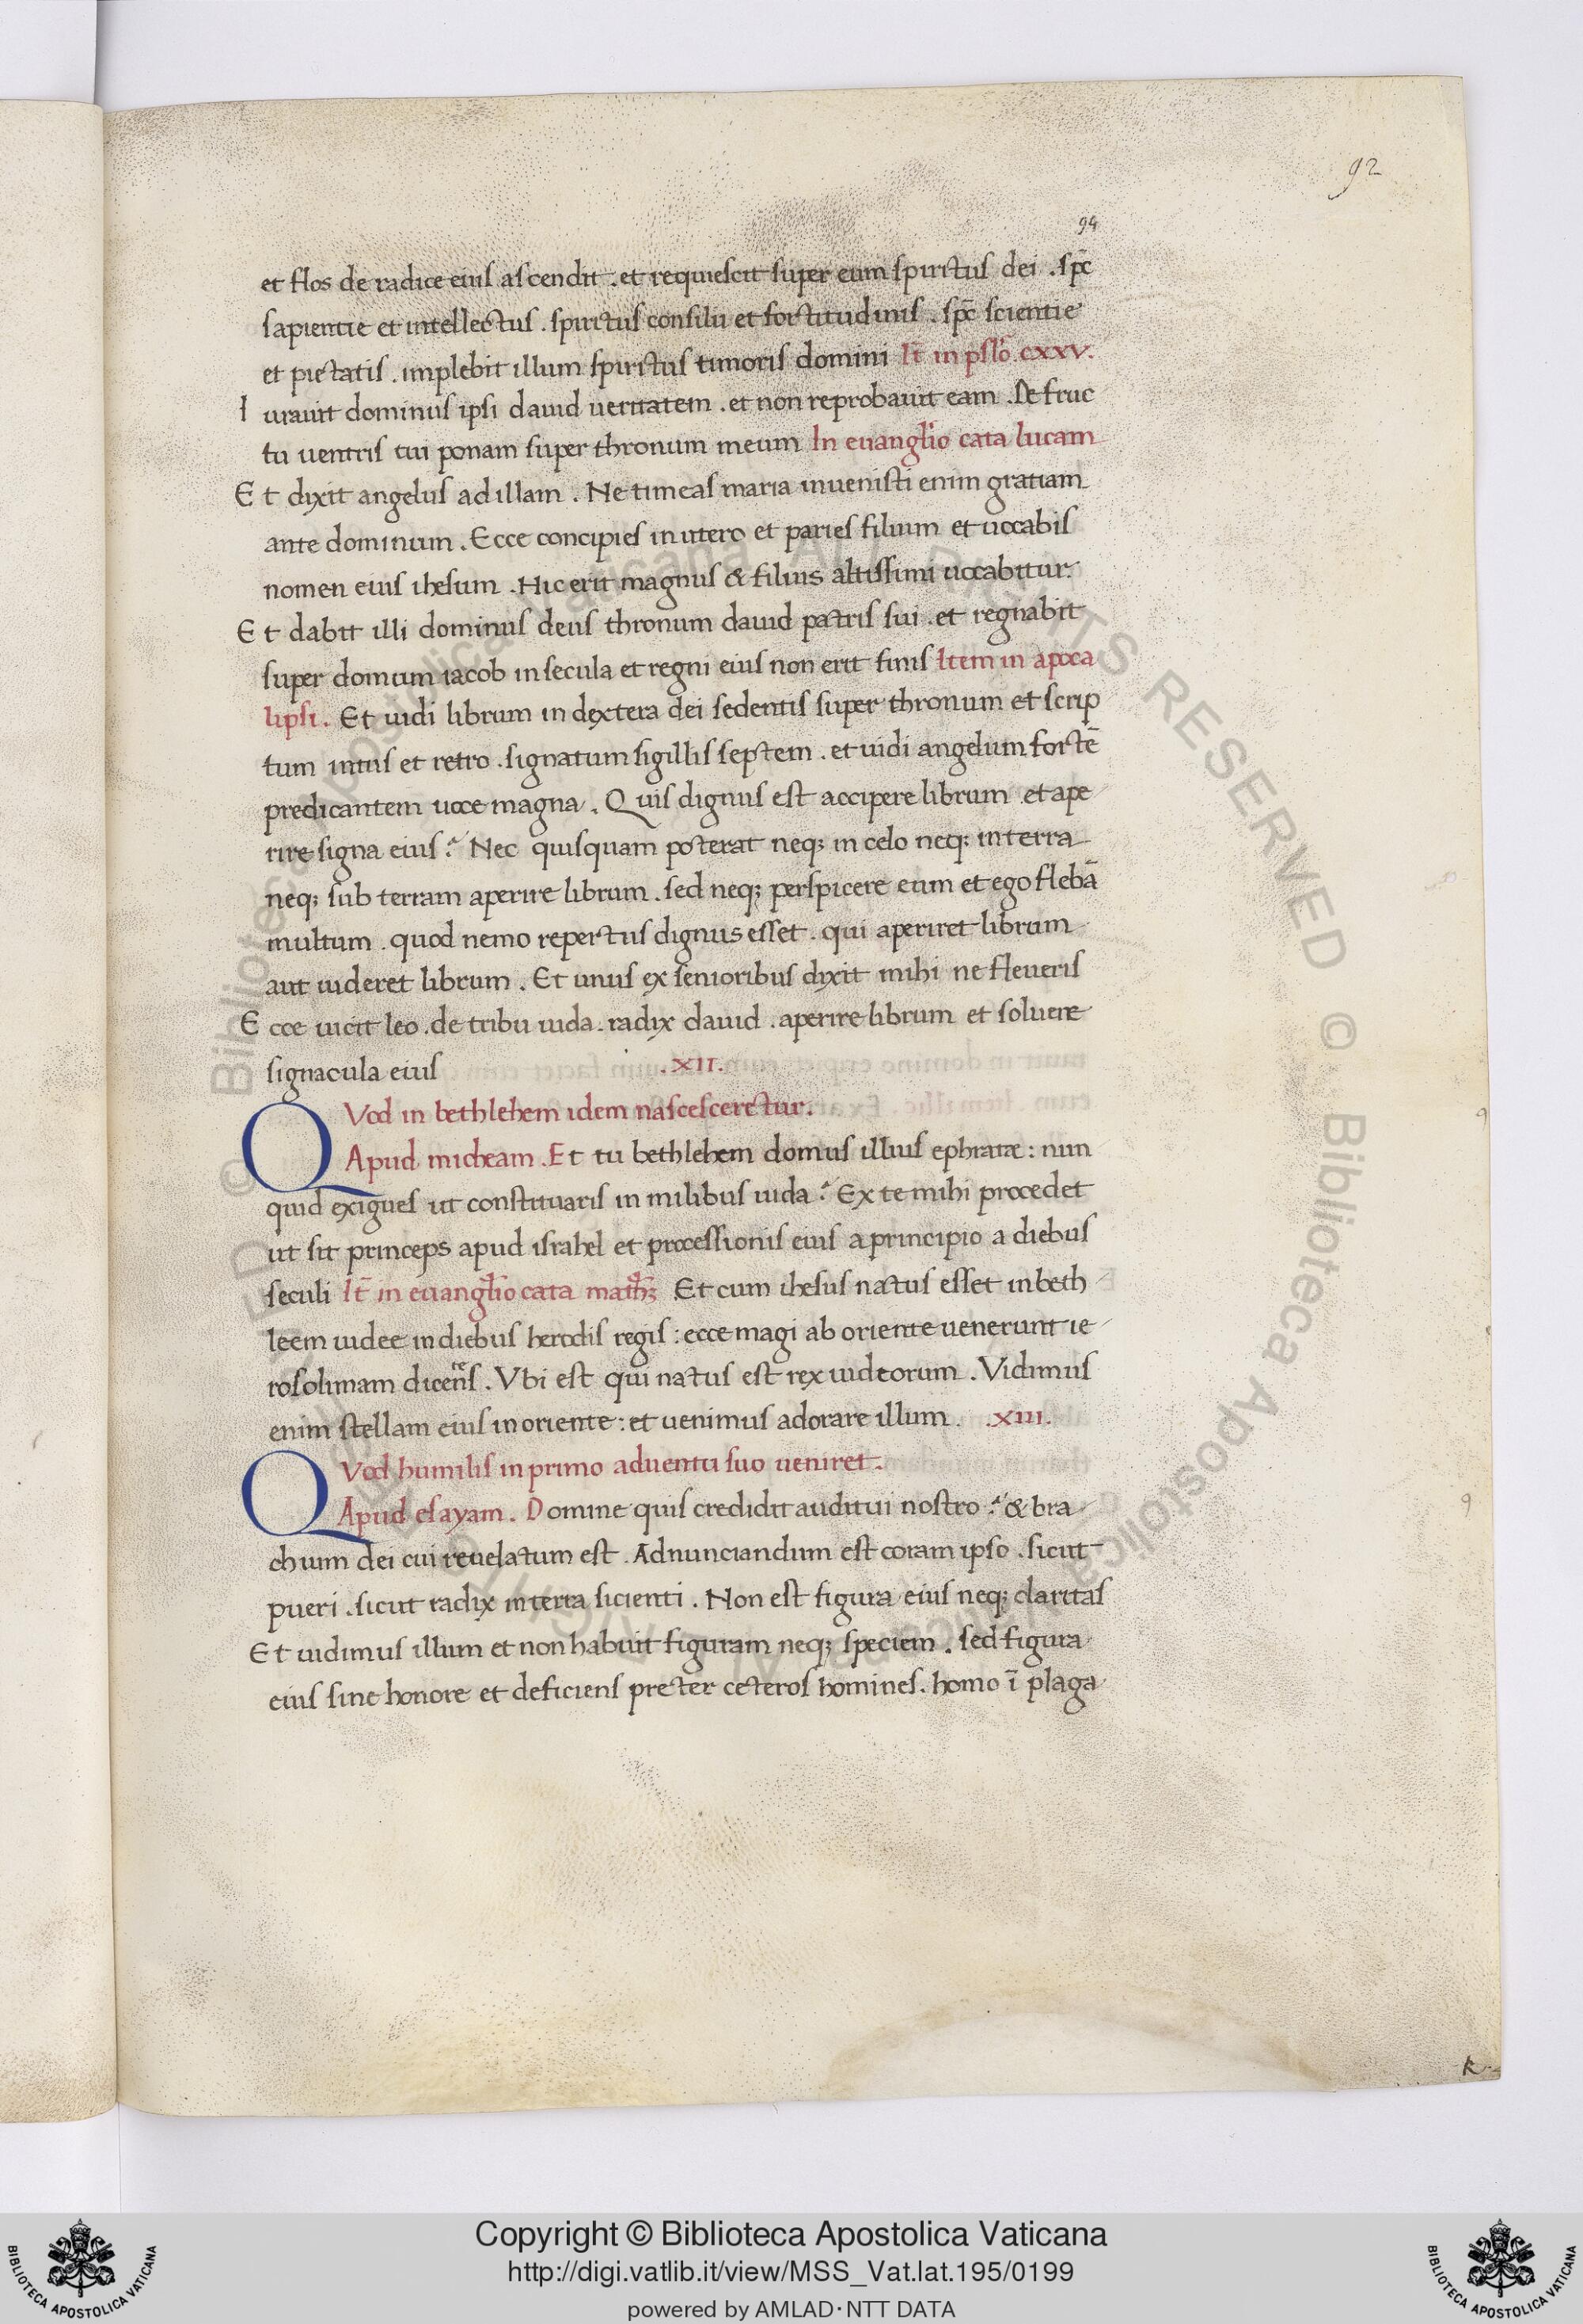 92
94
et flos de radice eius ascendit . et requiescit super eum spiritus dei . sp̄c
sapientie et intellectus . spiritus consilii et fortitudinis . sp̄c scientie
et pietatis . implebit illum spiritus timoris domini It̄ in pslō cxxv.
Iurauit dominus ipsi dauid ueritatem . et non reprobauit eam . De fruc
tu uentris tui ponam super thronum meum In euanglio cata lucam
Et dixit angelus ad illam . Ne timeas maria inuenisti enim gratiam
ante dominum . Ecce concipies in utero et paries filium et uocabis
nomen eius ihesum . Hic erit magnus & filius altissimi uocabitur.
Et dabit illi dominus deus thronum dauid patris sui . et regnabit
super domum iacob in secula et regni eius non erit finis Item in apoca
lipsi . Et uidi librum in dextera dei sedentis super thronum et scrip
tum intus et retro . signatum sigillis septem . et uidi angelum fortē
predicantem uoce magna . Quis dignus est accipere librum et ape
rire signa eius? Nec quisquam poterat neq; in celo neq; in terra
neq; sub terram aperire librum . sed neq; perspicere eum et ego flebā
multum . quod nemo repertus dignus esset . qui aperiret librum
aut uideret librum . Et unus ex senioribus dixit mihi ne fleueris
Ecce uicit leo . de tribu iuda . radix dauid . aperire librum et soluere
signacula eius .XII.
QVod in bethlehem idem nascesceretur.
Apud micheam . Et tu bethlehem domus illius ephratæ : nun
quid exigues ut constituaris in milibus iuda? Ex te mihi procedet
ut sit princeps apud israhel et processionis eius a principio a diebus
seculi It̄ in euanglio cata math; Et cum ihesus natus esset in beth
leem iudee in diebus herodis regis : ecce magi ab oriente uenerunt ie
rosolimam dicentes . Vbi est qui natus est rex iudeorum . Vidimus
enim stellam eius in oriente : et uenimus adorare illum . .XIII.
QVod humilis in primo aduentu suo ueniret .
Apud esayam . Domine quis credidit auditui nostro? & bra
chium dei cui reuelatum est . Adnunciandum est coram ipso . sicut
pueri . sicut radix in terra sicienti . Non est figura eius neq; claritas
Et uidimus illum et non habuit figuram neq; speciem . sed figura
eius sine honore et deficiens preter ceteros homines . homo ī plaga
k
Copyright © Biblioteca Apostolica Vaticana
http://digi.vatlib.it/view/MSS_Vat.lat.195/0199
powered by AMLAD·NTT DATA